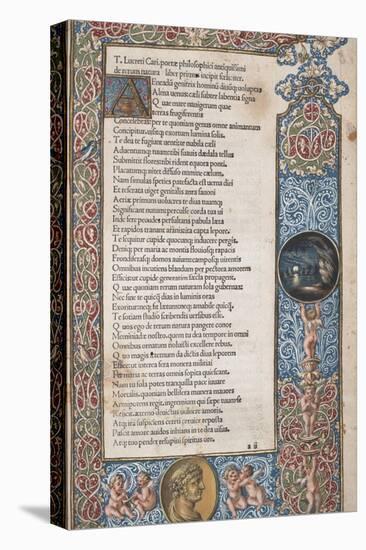 T. Lucreti Cari. poetæ philosophici antiquissimi
de rerum natura liber primus incipit fœliciter.
Aeneadū genitrix hominū diuūq; uoluptas
Alma uenus: cæli subter labentia signa
Quæ mare nauigerum quæ
terras frugiferentis
Concelebras: per te quoniam genus omne animantum
Concipitur. uisitq; exortum lumina solis.
Te dea te fugiunt uenti: te nubila cæli
Aduentumq; tuum: tibi suauis dædala tellus
Submittit flores: tibi rident equora ponti.
Placatumq; nitet diffuso numine cælum.
Nam simul ac species patefacta est uerna diei
Et reserata uiget genitalis aura fauoni
Aeriæ primum uolucres te diua tuumq;
Significant initum: perculsæ corda tua ui
Inde feræ pecudes persultant pabula læta
Et rapidos tranant amnis: ita capta lepore.
Te sequitur cupide quo cunq; inducere pergis.
Deniq; per maria ac montis fluuiosq; rapacis
Frondiferasq; domos auium: camposq; uirentis
Omnibus incutiens blandum per pectora amorem
Efficis: ut cupide generatim sæcla propagent.
Quæ quoniam rerum naturam sola gubernas:
Nec sine te quicq̃ dias in luminis oras
Exoritur: neq; fit lætum: neq; amabile quicq̃.
Te sociam studio scribendis uersibus esse.
Quos ego de rerum natura pangere conor
Memmiadæ nostro. quem tu dea tempore in omni
Omnibus ornatum uoluisti excellere rebus.
Quo magis æternum da dictis diua leporem
Effice: ut interea fera mœnera militiai
Per maria ac terras omnis sopita quiescant.
Nam tu sola potes tranquilla pace iuuare
Mortalis. quoniam bellifera munera mauors
Armipotens regit. ingremium qui sæpe tuum se
Reicit. æterno deuictus uulnere amoris.
Atq; ita suspiciens cereti ceruice reposta
Pascit amore auidos inhians in te dea uisus.
Atq; tuo pendet resupini spiritus ore.
a ii